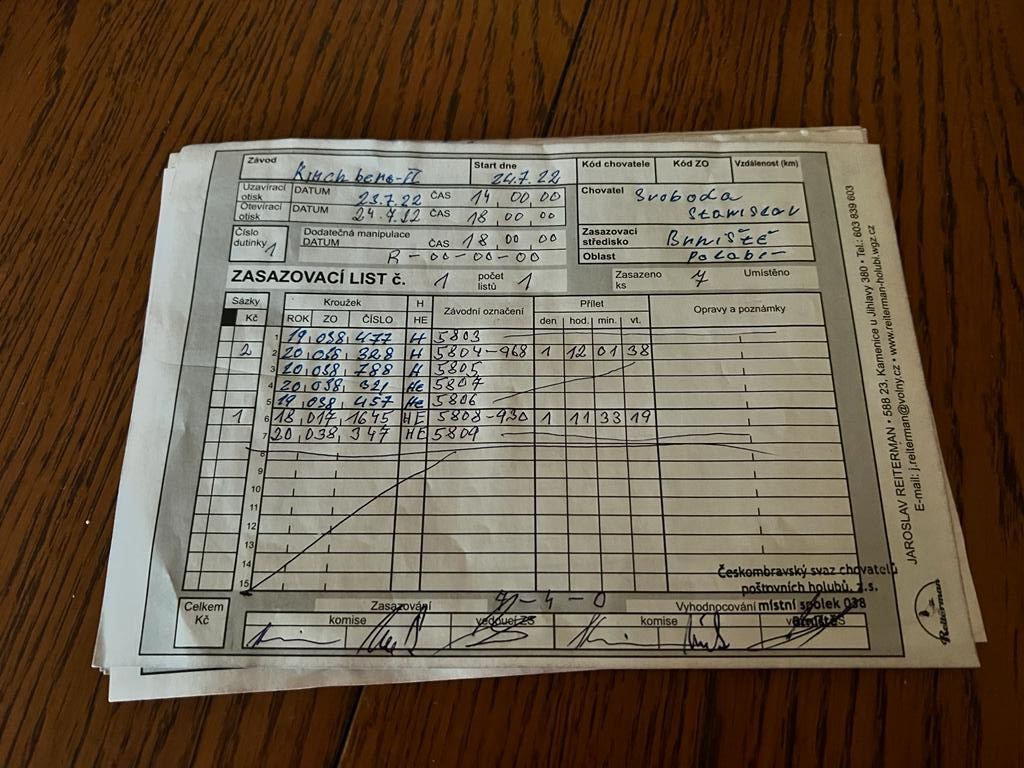 Závod Kirchberg-II Start dne 24.7.22 Kód chovatele Kód ZO Vzdálenost (km)
Uzavírací otisk DATUM 23.7.22 ČAS 14 00 00
Otevírací otisk DATUM 24.7.22 ČAS 18 00 00
Chovatel Svoboda Stanislav
Číslo dutinky 1 Dodatečná manipulace DATUM ČAS 18 00 00
R-00-00-00
Zasazovací středisko Brniště
Oblast Polabí
ZASAZOVACÍ LIST č. 1 počet listů 1 Zasazeno ks 7 Umístěno
Sázky Kroužek H Závodní označení Přílet Opravy a poznámky
Kč ROK ZO ČÍSLO HE den hod. min. vt.
1 19 038 477 H 5803
2 2 20 038 328 H 5804-968 1 12 01 38
3 20 038 788 H 5805
4 20 038 321 He 5807
5 19 038 457 He 5806
1 6 18 017 1645 HE 5808-930 1 11 33 19
7 20 038 347 HE 5809
8
9
10
11
12
13
14
15
Českomoravský svaz chovatelů
poštovních holubů, z.s.
místní spolek 038
Brniště
7-4-0
Celkem Kč Zasazování Vyhodnocování
komise vedoucí ZS komise
JAROSLAV REITERMAN • 588 23, Kamenice u Jihlavy 380 • Tel.: 603 839 603
E-mail: j.reiterman@volny.cz • www.reiterman-holubi.wgz.cz
Reiterman